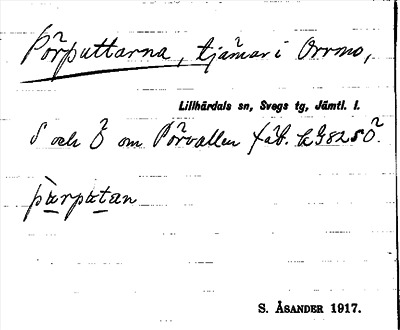 Pörputtarna, tjärnar i Orrmo,
Lillhärdals sn, Svegs tg, Jämtl. l.
S och Ö om Pörvallen fäb. k G8250.
pærpætan
S. ÅSANDER 1917.